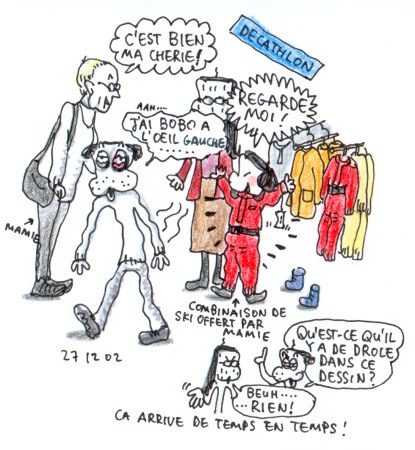 C'EST BIEN
MA CHERIE!
DECATHLON
AAH....
J'AI BOBO A
L'OEIL GAUCHE
........
REGARDE
MOI!
MAMIE
COMBINAISON DE
SKI OFFERT PAR
MAMIE
27 12 02
QU'EST-CE QU'IL
Y A DE DROLE
DANS CE
DESSIN?
BEUH....
...RIEN!
CA ARRIVE DE TEMPS EN TEMPS!